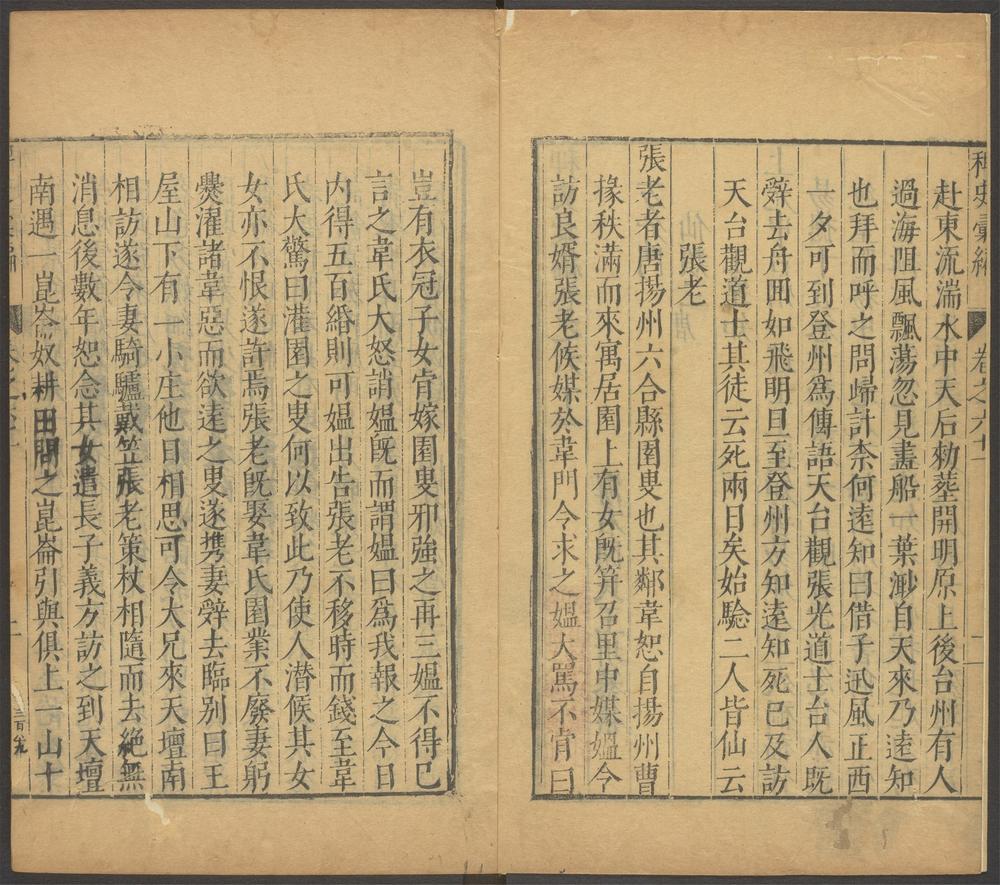 稗史彙編 卷之六十一
赴東流湍水中天后勑塟開明原上後台州有人
過海阻風飄蕩忽見畫船一葉渺自天來乃遠知
也拜而呼之問歸計柰何遠知曰借子迅風正西
一夕可到登州爲傳語天台觀張光道士台人旣
辤去舟囬如飛明旦至登州方知遠知死已及訪
天台觀道士其徒云死兩日矣始驗二人皆仙云
張老
張老者唐揚州六合縣園叟也其鄰韋恕自揚州曹
掾秩滿而來寓居園上有女旣笄召里中媒媼令
訪良婿張老候媒於韋門令求之媼大罵不肯曰
豈有衣冠子女肯嫁園叟邪強之再三媼不得已
言之韋氏大怒誚媼旣而謂媼曰爲我報之今日
内得五百緡則可媼出告張老不移時而錢至韋
氏大驚曰灌園之叟何以致此乃使人潜候其女
女亦不恨遂許焉張老旣娶韋氏園業不廢妻躬
爨濯諸韋惡而欲遠之叟遂携妻辤去臨别曰王
屋山下有一小庄他日相思可令大兄來天壇南
相訪遂令妻騎驢戴笠張老策杖相隨而去絶無
消息後數年恕念其女遣長子義方訪之到天壇
南遇一崑崙奴耕田問之崑崙引與俱上一山十